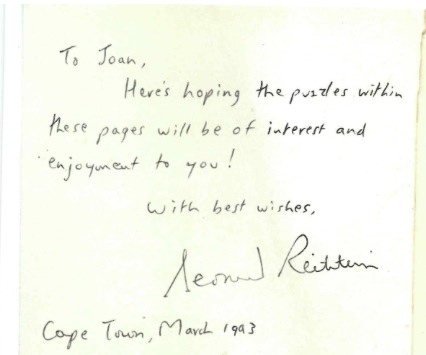 To Joan,
Here's hoping the puzzles within
these pages will be of interest and
enjoyment to you!
With best wishes,
Leonard
Cape Town, March 1993